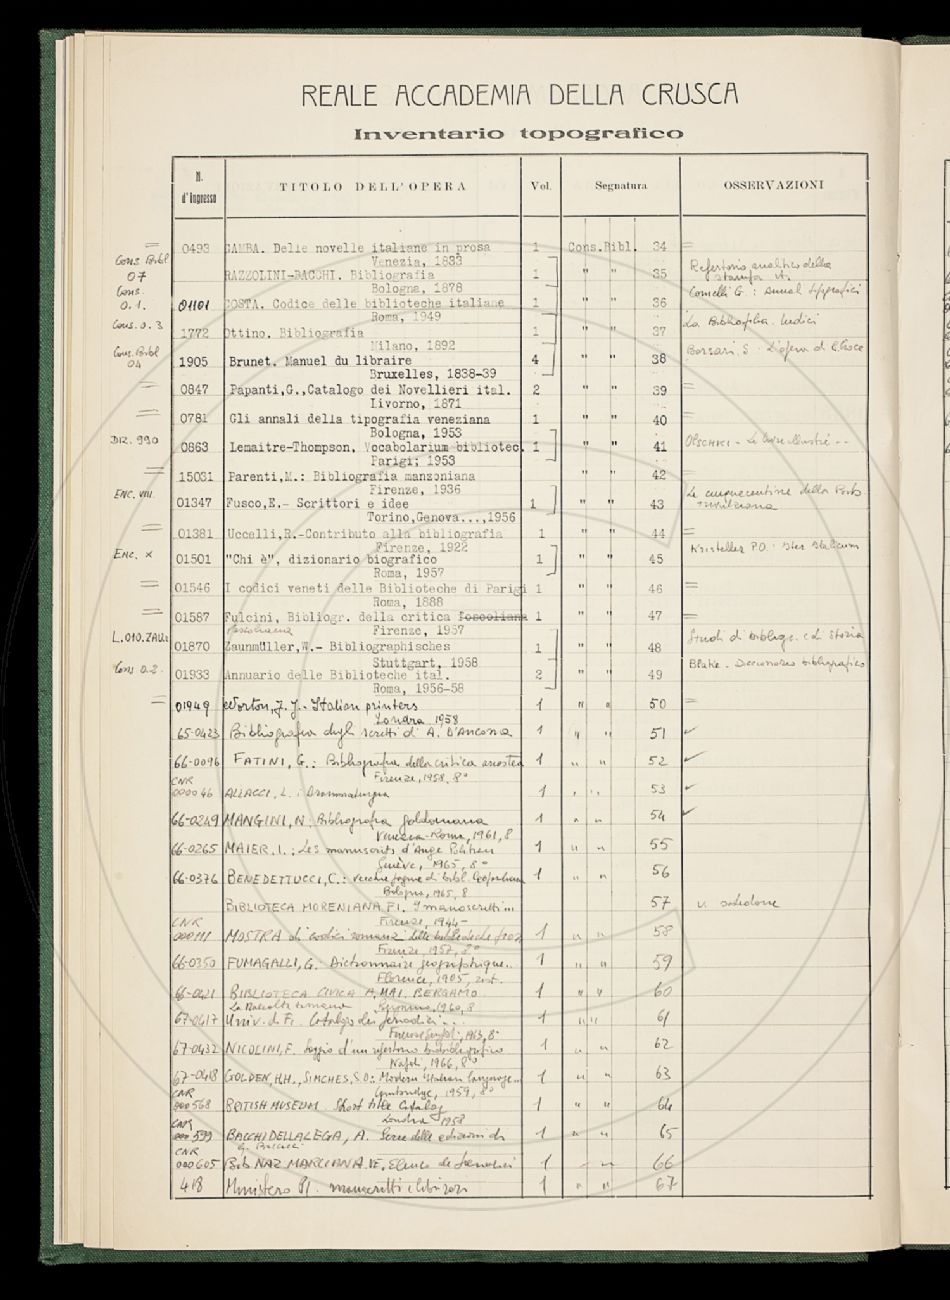 REALE ACCADEMIA DELLA CRUSCA
Inventario topografico
N. d'Ingresso TITOLO DELL'OPERA Vol. Segnatura OSSERVAZIONI
= 0493 GAMBA. Delle novelle italiane in prosa 1 Cons.Bibl. 34 =
Venezia, 1833
Cons. Bibl 07 RAZZOLINI-BACCHI. Bibliografia 1 " " 35 Repertorio analitico della stampa it.
Bologna, 1878
Cons. 0.1. 01101 COSTA. Codice delle biblioteche italiane 1 " " 36 Comelli G.: Annal tipografici
Roma, 1949
Cons. 0.3 1772 Ottino. Bibliografia 1 " " 37 La Bibliofilia. Indici
Milano, 1892
Cons. Bibl 04 1905 Brunet. Manuel du libraire 4 " " 38 Borsari. S. L'opera di B. Croce
Bruxelles, 1838-39
= 0847 Papanti,G.,Catalogo dei Novellieri ital. 2 " " 39 =
Livorno, 1871
= 0781 Gli annali della tipografia veneziana 1 " " 40 =
Bologna, 1953
DIZ. 990 0863 Lemaitre-Thompson. Vocabolarium bibliotec. 1 " " 41 Olschki - Le livre illustré --
Parigi; 1953
= 15031 Parenti,M.: Bibliografia manzoniana " " 42 =
Firenze, 1936
ENC. VIII. 01347 Fusco,E.- Scrittori e idee 1 " " 43 Le cinquecentine della
Torino,Genova...,1956
= 01381 Uccelli,R.-Contributo alla bibliografia 1 " " 44 =
Firenze, 1922
ENC. X 01501 "Chi è", dizionario biografico 1 " " 45 Kristeller P.O. Iter Italicum
Roma, 1957
= 01546 I codici veneti delle Biblioteche di Parigi 1 " " 46 =
Roma, 1888
= 01587 Fulcini, Bibliogr. della critica Foscoliana 1 " " 47 =
foscoliana Firenze, 1957
L.010.ZAU 01870 Zaunmüller,W.- Bibliographisches 1 " " 48 Studi di bibliogr. e di storia
Stuttgart, 1958
Cons 0.2. 01933 Annuario delle Biblioteche ital. 2 " " 49 Blake. Diccionario bibliografico
Roma, 1956-58
= 01949 Norton, F. J.- Italian printers 1 " " 50 =
Londra 1958
65-0423 Bibliografia degli scritti di A. D'Ancona 1 " " 51 ✓
66-0096 FATINI, G.: Bibliografia della critica ariostea 1 " " 52 ✓
Firenze, 1958, 8°
CNR 000046 ALLACCI, L.: Drammaturgia 1 " " 53 ✓
66-0249 MANGINI, N. Bibliografia goldoniana 1 " " 54 ✓
Venezia-Roma, 1961, 8
66-0265 MAIER, I.: Les manuscrits d'Ange Politien 1 " " 55
Genève, 1965, 8°
66-0376 BENEDETTUCCI, C.: vecchie pagine di bibl. leopardiana 1 " " 56
Bologna, 1965, 8
BIBLIOTECA MORENIANA FI. I manoscritti... 57 v. schedone
Firenze, 1944-
CNR 000111 MOSTRA di codici romanzi delle biblioteche fior. 1 " " 58
Firenze, 1957, 8°
66-0350 FUMAGALLI, G. Dictionnaire géographique.. 1 " " 59
Florence, 1905, rist.
66-0421 BIBLIOTECA CIVICA A. MAI. BERGAMO 1 " " 60
La Raccolta tassiana Bergamo, 1960, 8
67-0417 Univ. di Fi. Catalogo dei periodici... 1 " " 61
67-0432 NICOLINI, F. Saggio d'un repertorio biobibliografico 1 " " 62
Napoli, 1966, 8°
67-0418 GOLDEN, H.H., SIMCHES, S.O.: Modern Italian language... 1 " " 63
Cambridge, 1959, 8°
CNR 000568 BRITISH MUSEUM Short title Catalog 1 " " 64
Londra 1958
CNR 000599 BACCHI DELLA LEGA, A. Serie delle edizioni di 1 " " 65
G. Boccacci
CNR 000605 Bib. NAZ. MARCIANA. VE. Elenco de periodici 1 " " 66
418 Ministero P.I. manoscritti e libri rari 1 " " 67